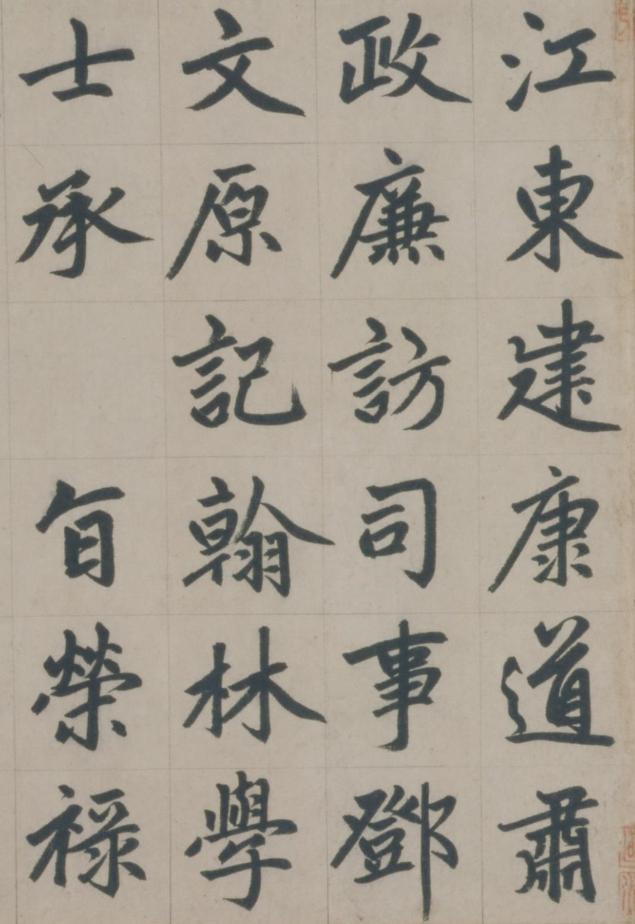 江東建康道肅
政廉訪司事鄧
文原記翰林學
士承　旨榮祿